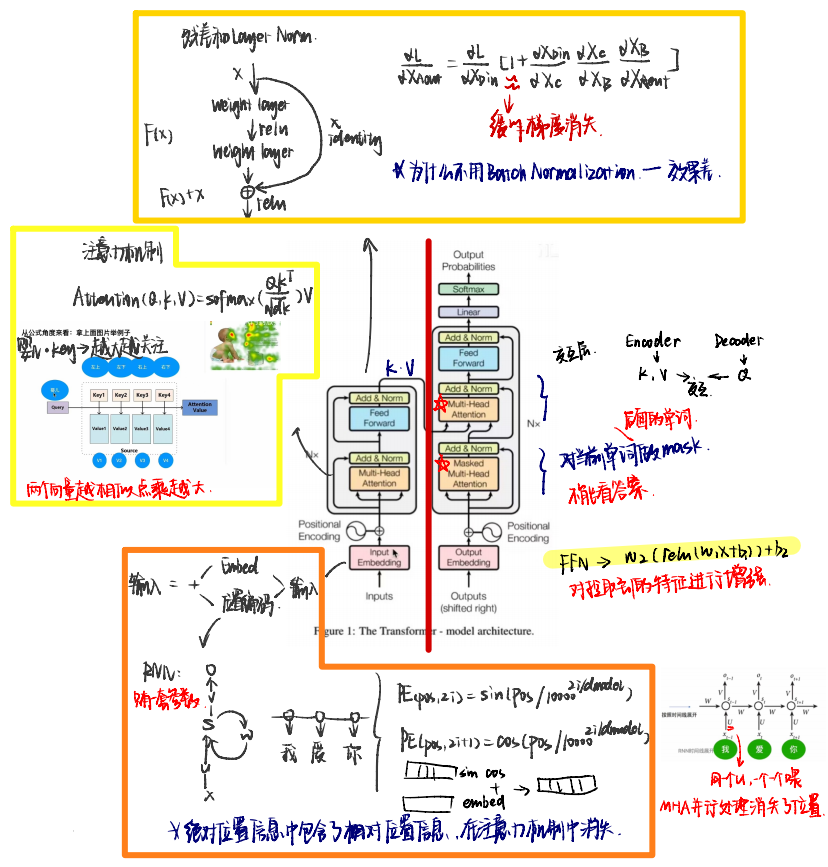 残差和Layer Norm.
X
weight layer
relu
weight layer
F(x)
X
identity
F(x)+x
⊕
relu
dL/dXAout = dL/dXDin [1 + dXDin/dXc dXc/dXB dXB/dXAout]
缓解梯度消失.
* 为什么不用Batch Normalization. — 效果差.
注意力机制
Attention(Q,K,V)=sofmax(QK^T/√dk)V
从公式角度来看：拿上面图片举例子
婴儿·key→越大越关注
左上 左下 右上 右下
婴儿
Query
Key1 Key2 Key3 Key4
Value1 Value2 Value3 Value4
Attention
Value
Source
V1 V2 V3 V4
两个向量越相似点乘越大
Output
Probabilities
Softmax
Linear
Add & Norm
Feed
Forward
Add & Norm
Multi-Head
Attention
Add & Norm
Masked
Multi-Head
Attention
N×
Positional
Encoding
Output
Embedding
Outputs
(shifted right)
K.V
Add & Norm
Feed
Forward
Add & Norm
Multi-Head
Attention
N×
Positional
Encoding
Input
Embedding
Inputs
Figure 1: The Transformer - model architecture.
交互层.
Encoder Decoder
K.V → 交互 ← Q
后面的单词.
对当前单词后的mask.
不能看答案.
FFN → W2(relu(W1X+b1))+b2
对提取到的特征进行增强.
输入 = + Embed 位置编码. 输入
RNN:
O
S
W
U
X
我 爱 你
PE(pos,2i)=sin(pos/10000^2i/dmodel)
PE(pos,2i+1)=cos(pos/10000^2i/dmodel)
sin cos
+
embed
* 绝对位置信息中包含了相对位置信息、在注意力机制中消失.
按照时间线展开
RNN时间线展开
o_t-1 o_t o_t+1
V V V
W S_t-1 W S_t W S_t+1 W
U U U
x_t-1 x_t x_t+1
我 爱 你
同个U,一个个喂
MHA并行处理消失了位置.